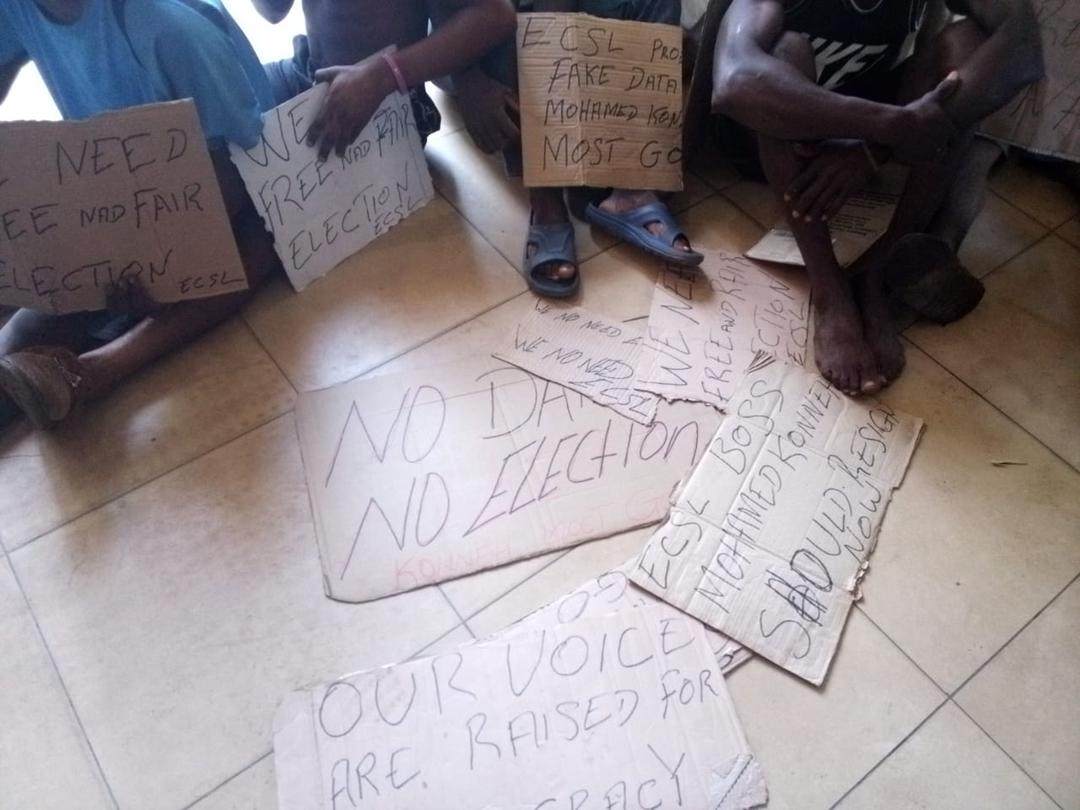 NEED
FREE NAD FAIR
ELECTION ECSL
WE
FREE NAD FAIR
ELECTION
ECSL
ECSL PRO
FAKE DATA
MOHAMED KON
MOST GO
WE NO NEED
WE NO NEED
ECSL
WE NEE
FREE AND FAIR
ECTION
ECSL
NO DA
NO ELECTION
KONNEH MOST GO
ECSL BOSS
MOHAMED KONNEH
SHOULD RESIGN
NOW
OUR VOICE
ARE. RAISED FOR
CRACY